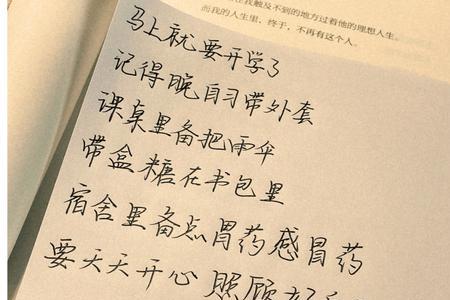 在我触及不到的地方过着他的理想人生。
而我的人生里，终于，不再有这个人。
马上就要开学了
记得晚自习带外套
课桌里备把雨伞
带盒糖在书包里
宿舍里备点胃药感冒药
要天天开心 照顾好